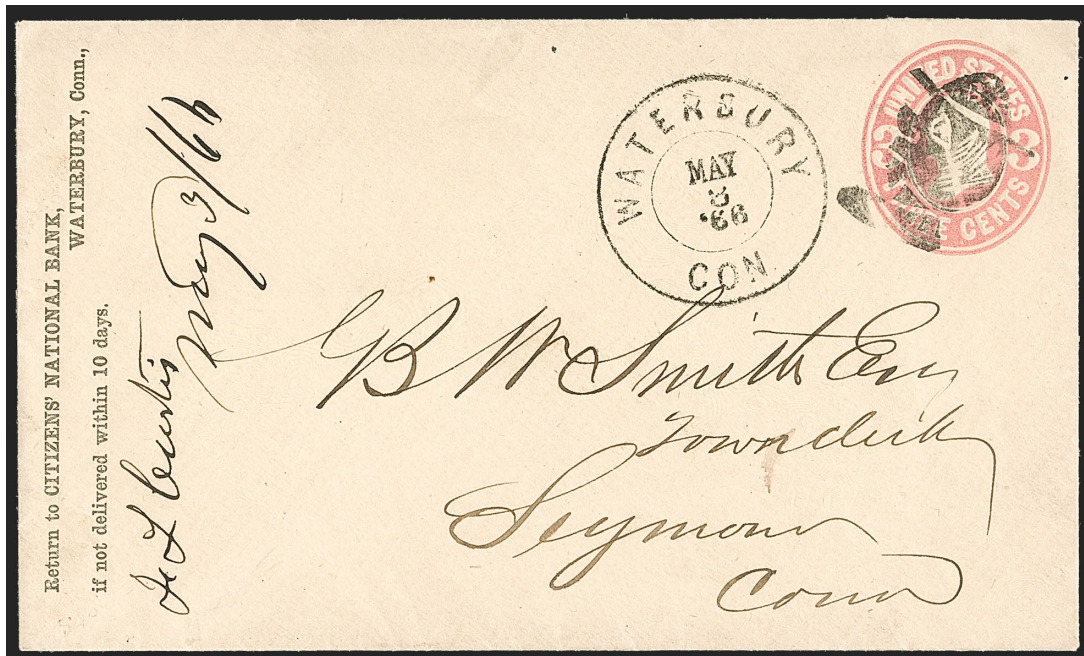 Return to CITIZENS' NATIONAL BANK,
WATERBURY, Conn.,
if not delivered within 10 days.
F L Curtis
May 3/66
WATERBURY
MAY
3
'66
CON.
UNITED STATES
3 3
CENTS
B W Smith Esq
Town clerk
Seymour
Conn